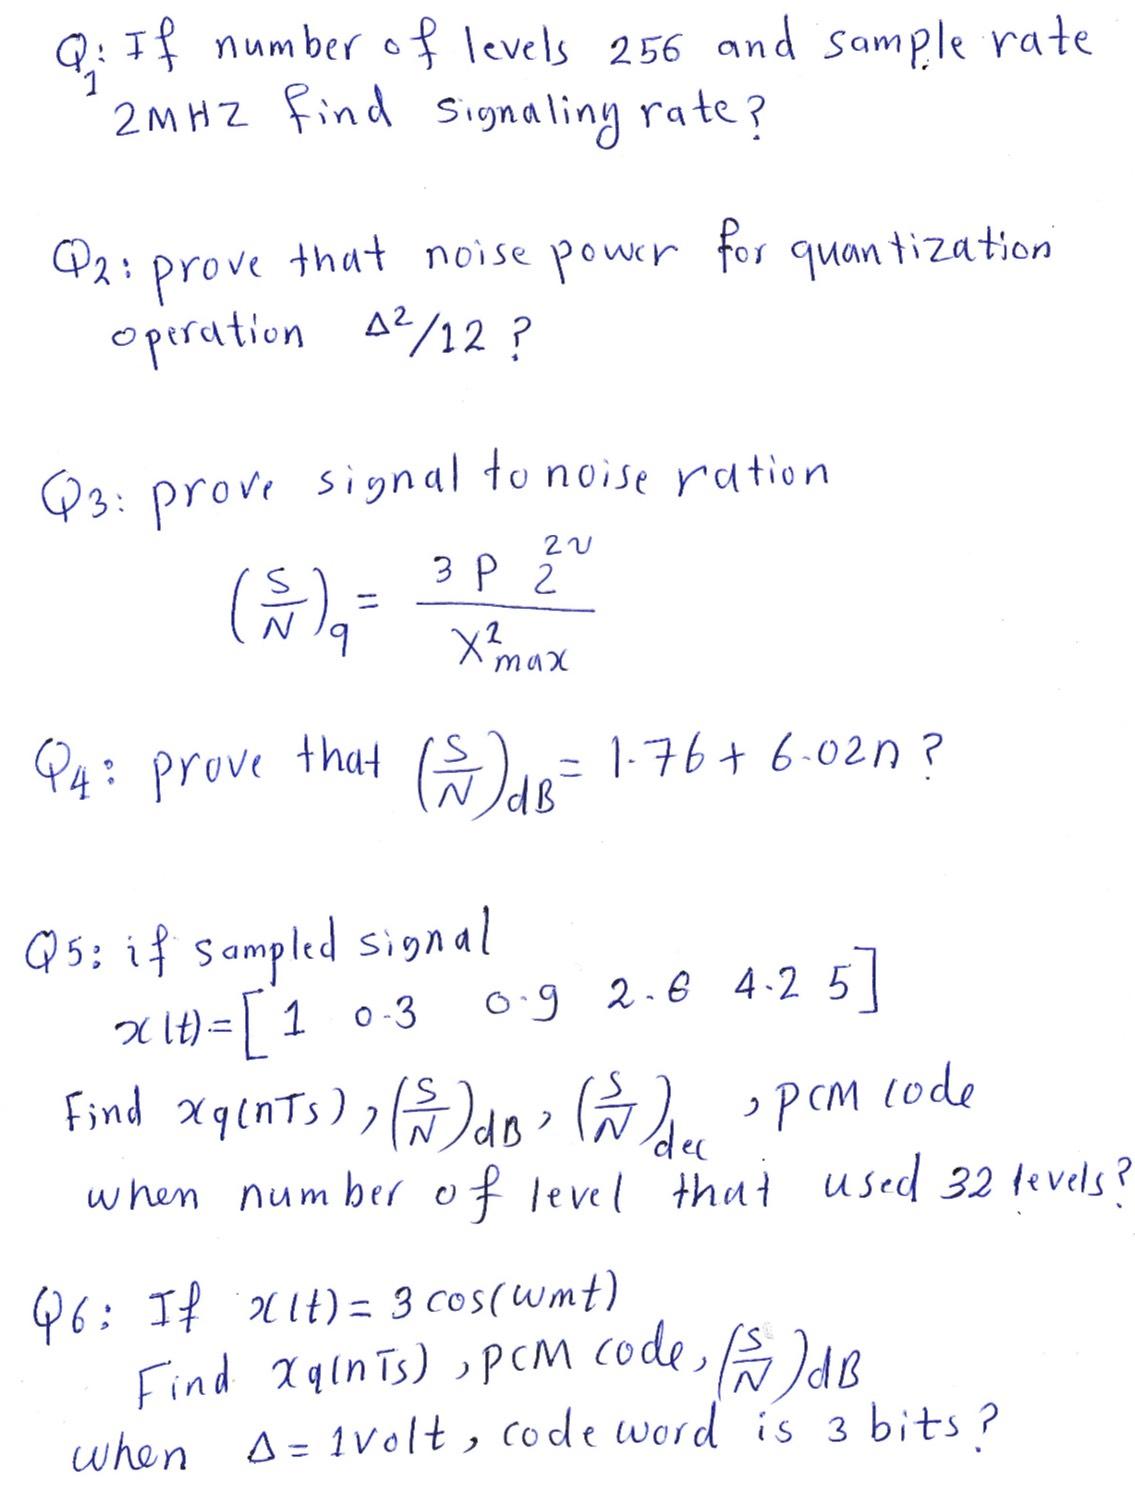 Q1: If number of levels 256 and sample rate
2MHZ find signaling rate?
Q2: prove that noise power for quantization
operation Δ²/12 ?
Q3: prove signal to noise ration
(S/N)q = 3 P 2^2v / X²max
Q4: prove that (S/N)dB = 1.76 + 6.02n ?
Q5: if sampled signal
x(t)=[ 1 0.3 0.9 2.6 4.2 5]
Find xq(nTs), (S/N)dB, (S/N)dec, PCM code
when number of level that used 32 levels?
Q6: If x(t) = 3 cos(wmt)
Find xq(nTs), PCM code, (S/N)dB
when Δ = 1volt, code word is 3 bits?